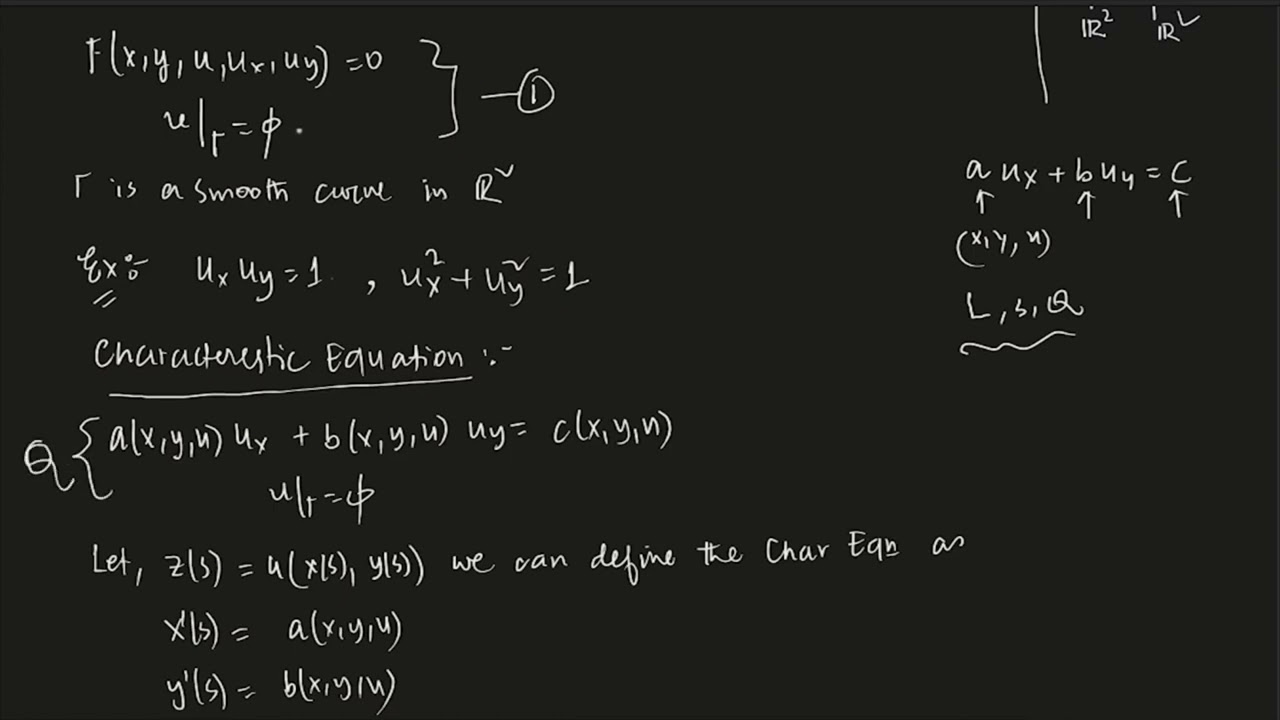 F(x,y,u,uₓ,u_y) = 0
u|_Γ = ϕ .
} — ①
Γ is a smooth curve in ℝ²
Ex:- uₓ u_y = 1 , uₓ² + u_y² = 1
Characterestic Equation :-
Q { a(x,y,u) uₓ + b(x,y,u) u_y = c(x,y,u)
u|_Γ = ϕ
Let, z(s) = u(x(s), y(s)) we can define the Char Eqn as
x'(s) = a(x,y,u)
y'(s) = b(x,y,u)
ℝ² ℝ²
a uₓ + b u_y = c
↑ ↑ ↑
(x,y,u)
L, s, Q